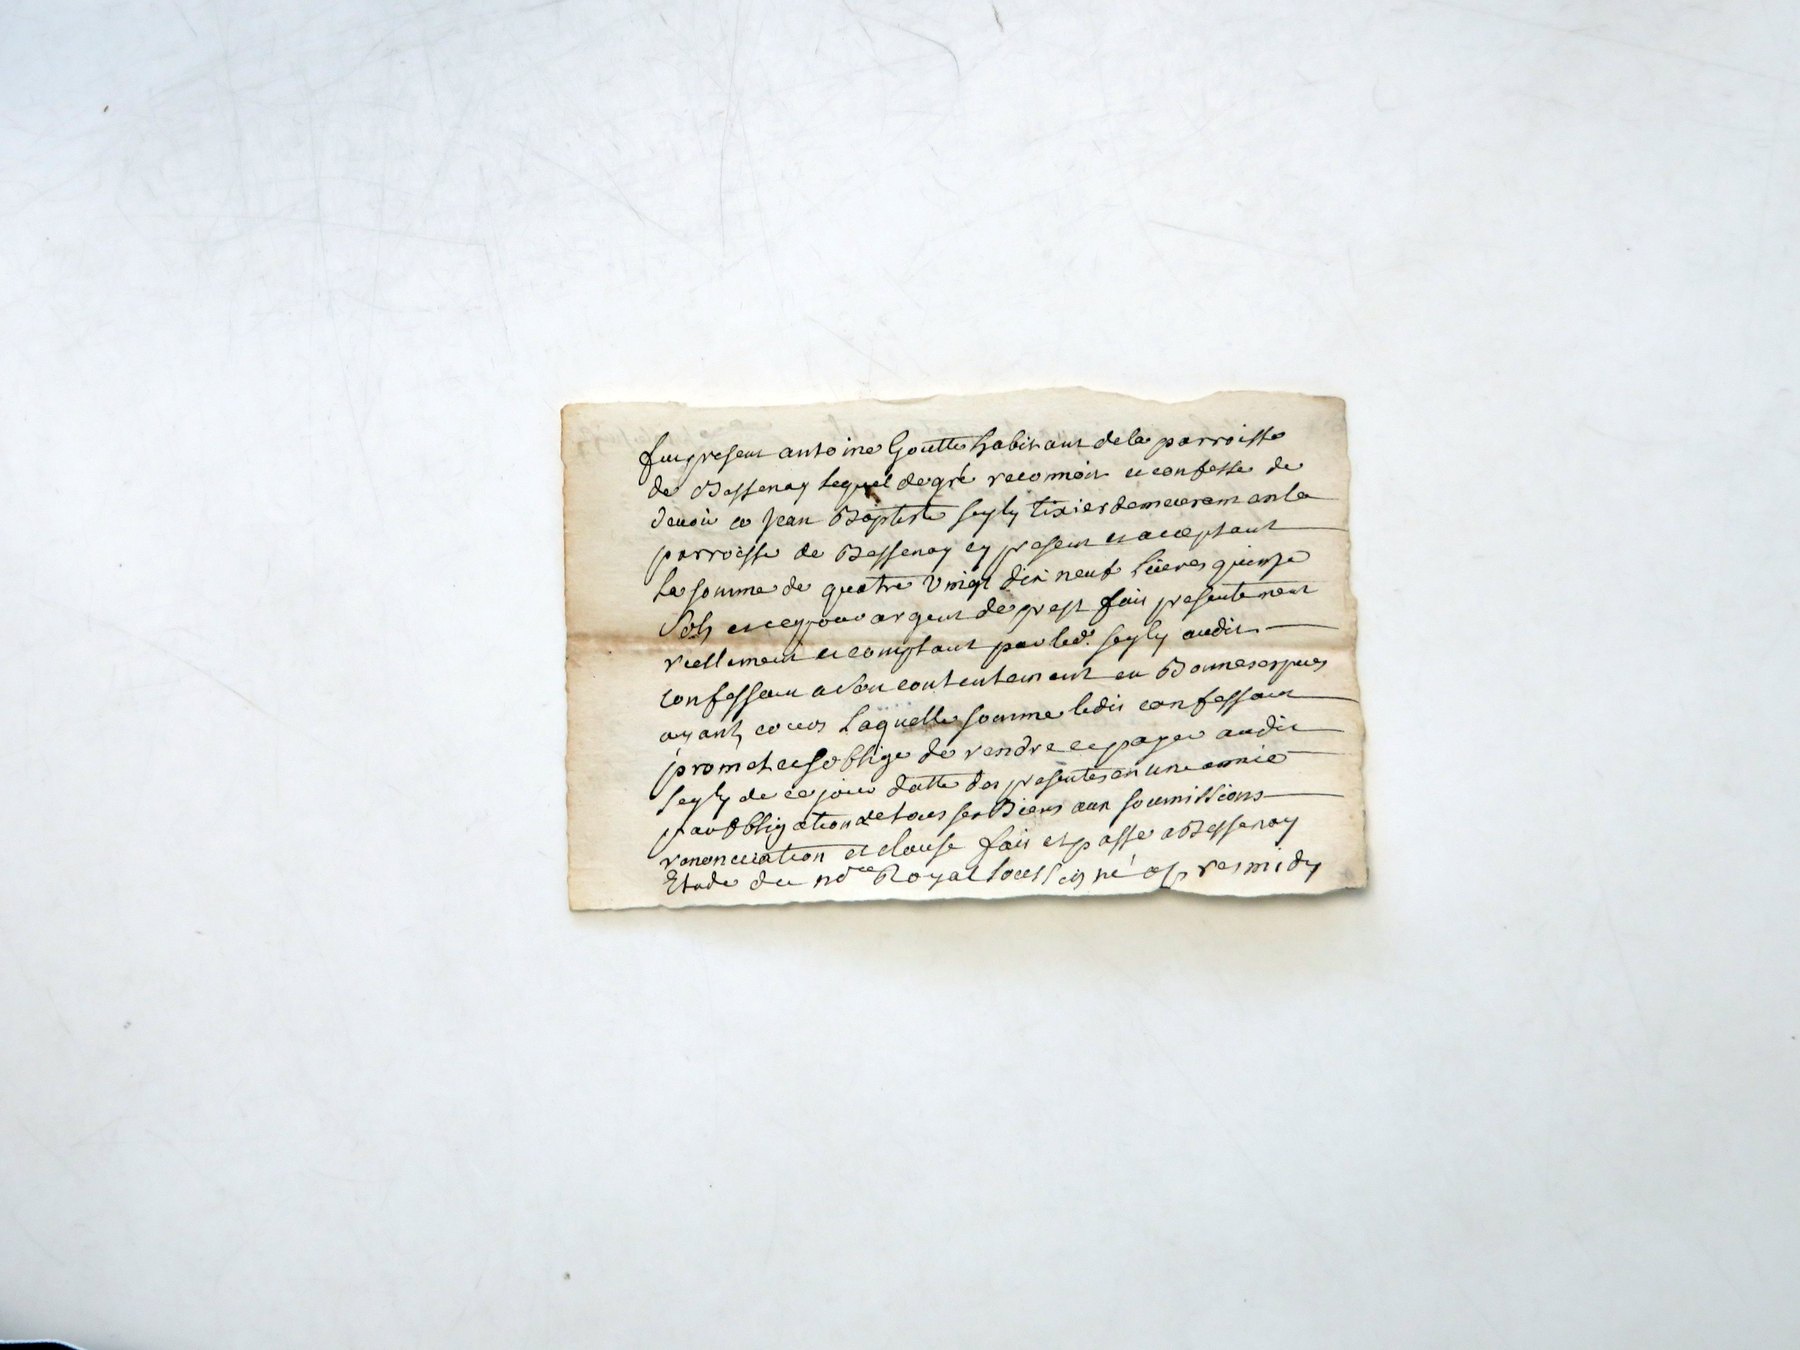 fut present antoine Goutte habitant de la parroisse
de Bessenay lequel de gré reconnoit et confesse de
devoir a Jean Baptiste seyly tixier demeurant en la
parroisse de Bessenay cy present et acceptant
la somme de quatre vingt dix neuf livres quinze
sols et ce pour argent de prest fait presentement
reellement et comptant par led. seyly audit
confessant a son contentement en Bonnes especes
ayant cours Laquelle somme ledit confessant
promet et soblige de rendre et payer audit
seyly de ce jour datte des presentes en une année
par obligation de tous ses Biens aux soumissions
renonciation et clause fait et passé a Bessenay
Etude du nore Royal soussigné apres midy